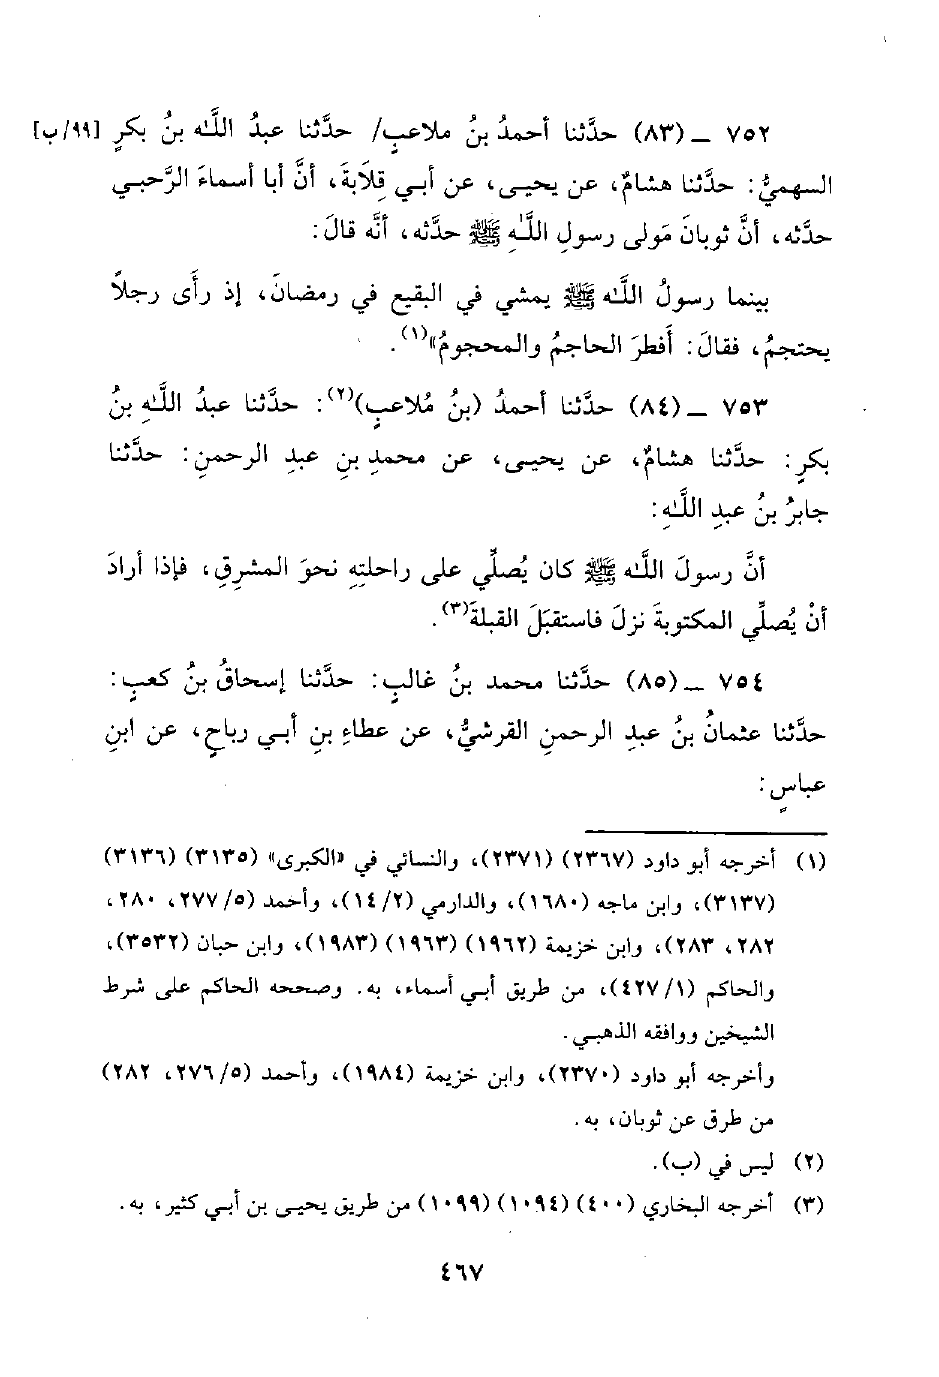 ٧٥٢ ـ (٨٣) حدَّثنا أحمدُ بنُ ملاعبٍ/ حدَّثنا عبدُ اللَّه بنُ بكرٍ [٩٩/ب]
السهميُّ: حدَّثنا هشامٌ، عن يحيى، عن أبي قِلَابةَ، أنَّ أبا أسماءَ الرَّحبي
حدَّثه، أنَّ ثوبانَ مَولى رسولِ اللَّهِ ﷺ حدَّثه، أنَّه قالَ:
بينما رسولُ اللَّه ﷺ يمشي في البقيع في رمضانَ، إذ رأَى رجلاً
يحتجمُ، فقالَ: أَفطرَ الحاجمُ والمحجومُ»(١).
٧٥٣ ـ (٨٤) حدَّثنا أحمدُ (بنُ مُلاعبٍ)(٢): حدَّثنا عبدُ اللَّهِ بنُ
بكرٍ: حدَّثنا هشامٌ، عن يحيى، عن محمدِ بنِ عبدِ الرحمنِ: حدَّثنا
جابرُ بنُ عبدِ اللَّهِ:
أنَّ رسولَ اللَّه ﷺ كان يُصلِّي على راحلتِهِ نحوَ المشرقِ، فإذا أرادَ
أنْ يُصلِّي المكتوبةَ نزلَ فاستقبَلَ القبلةَ(٣).
٧٥٤ ـ (٨٥) حدَّثنا محمد بنُ غالبٍ: حدَّثنا إسحاقُ بنُ كعبٍ:
حدَّثنا عثمانُ بنُ عبدِ الرحمنِ القرشيُّ، عن عطاءِ بنِ أبي رباحٍ، عن ابنِ
عباسٍ:
(١) أخرجه أبو داود (٢٣٦٧) (٢٣٧١)، والنسائي في «الكبرى» (٣١٣٥) (٣١٣٦)
(٣١٣٧)، وابن ماجه (١٦٨٠)، والدارمي (١٤/٢)، وأحمد (٥/ ٢٧٧، ٢٨٠،
٢٨٢، ٢٨٣)، وابن خزيمة (١٩٦٢) (١٩٦٣) (١٩٨٣)، وابن حبان (٣٥٣٢)،
والحاكم (١/ ٤٢٧)، من طريق أبي أسماء، به. وصححه الحاكم على شرط
الشيخين ووافقه الذهبي.
وأخرجه أبو داود (٢٣٧٠)، وابن خزيمة (١٩٨٤)، وأحمد (٥/ ٢٧٦، ٢٨٢)
من طرق عن ثوبان، به.
(٢) ليس في (ب).
(٣) أخرجه البخاري (٤٠٠) (١٠٩٤) (١٠٩٩) من طريق يحيى بن أبي كثير، به.
٤٦٧